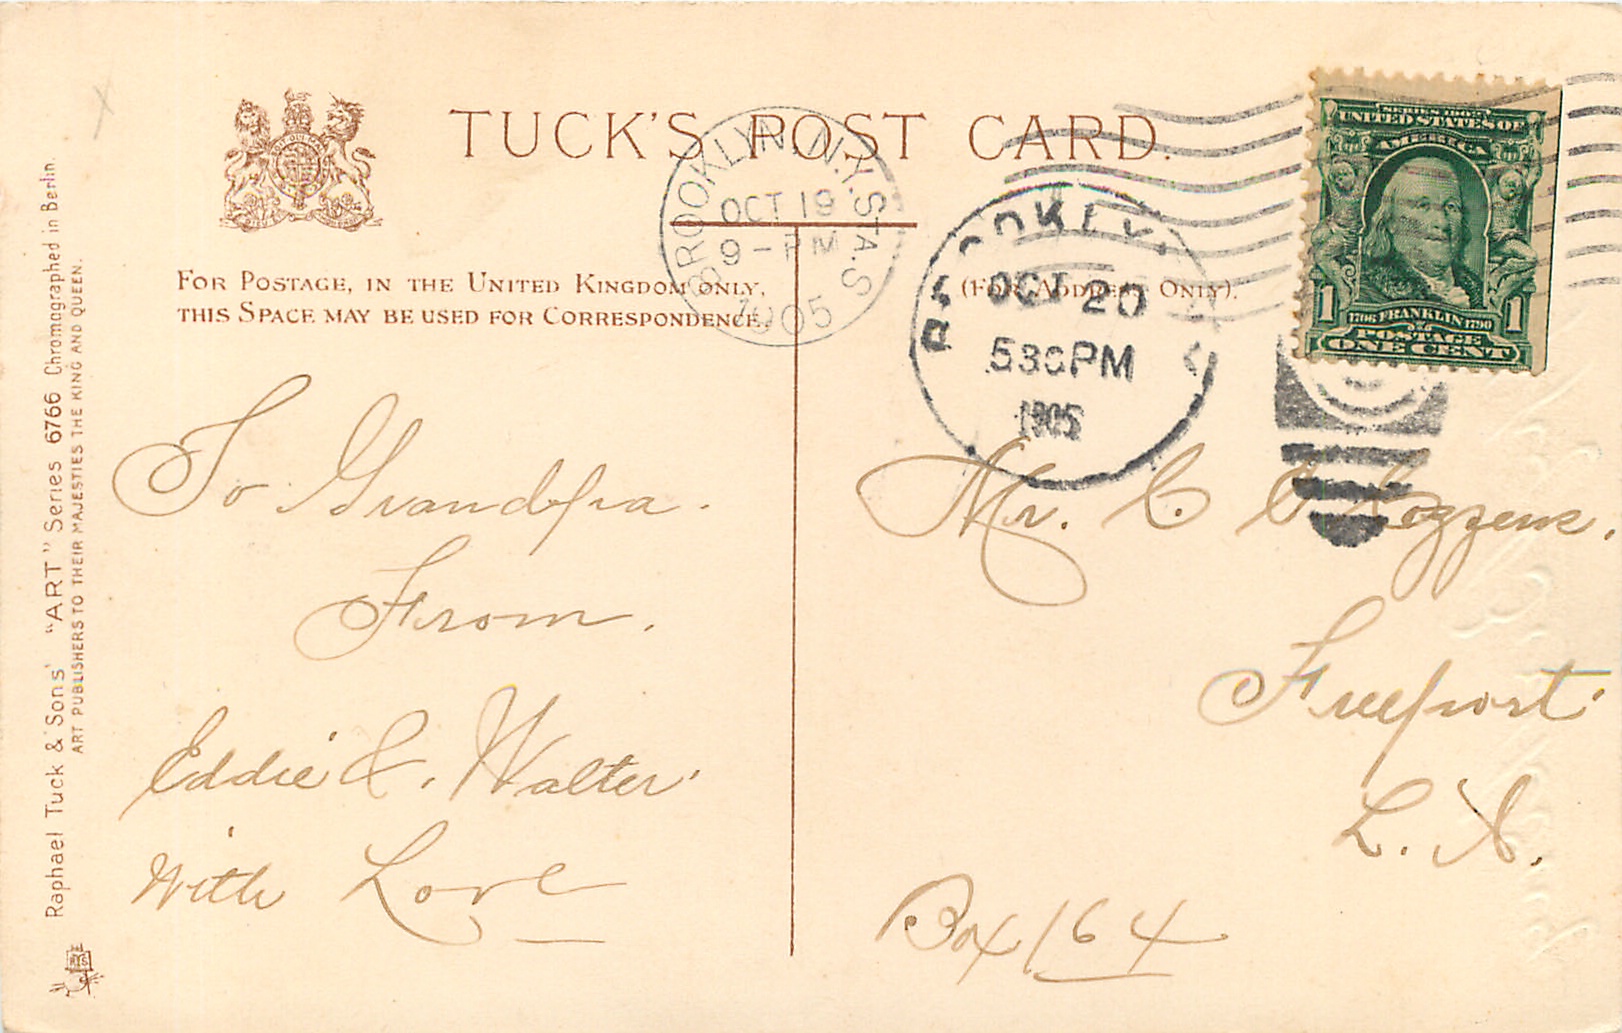 TUCK'S POST CARD.
FOR POSTAGE, IN THE UNITED KINGDOM ONLY,
THIS SPACE MAY BE USED FOR CORRESPONDENCE.
(FOR ADDRESS ONLY).
BROOKLYN, N.Y. STA. S
OCT 19
9-PM
1905
BROOKLYN
OCT 20
530PM
1905
SERIES 1902
UNITED STATES OF
AMERICA
1706 FRANKLIN 1790
1 1
POSTAGE
ONE CENT
To Grandpa.
From.
Eddie &. Walter.
With Love
Mr. C. C Cozzens.
Freeport.
L. I.
Box 164
Raphael Tuck & Sons' "ART" Series 6766 Chromographed in Berlin.
ART PUBLISHERS TO THEIR MAJESTIES THE KING AND QUEEN.